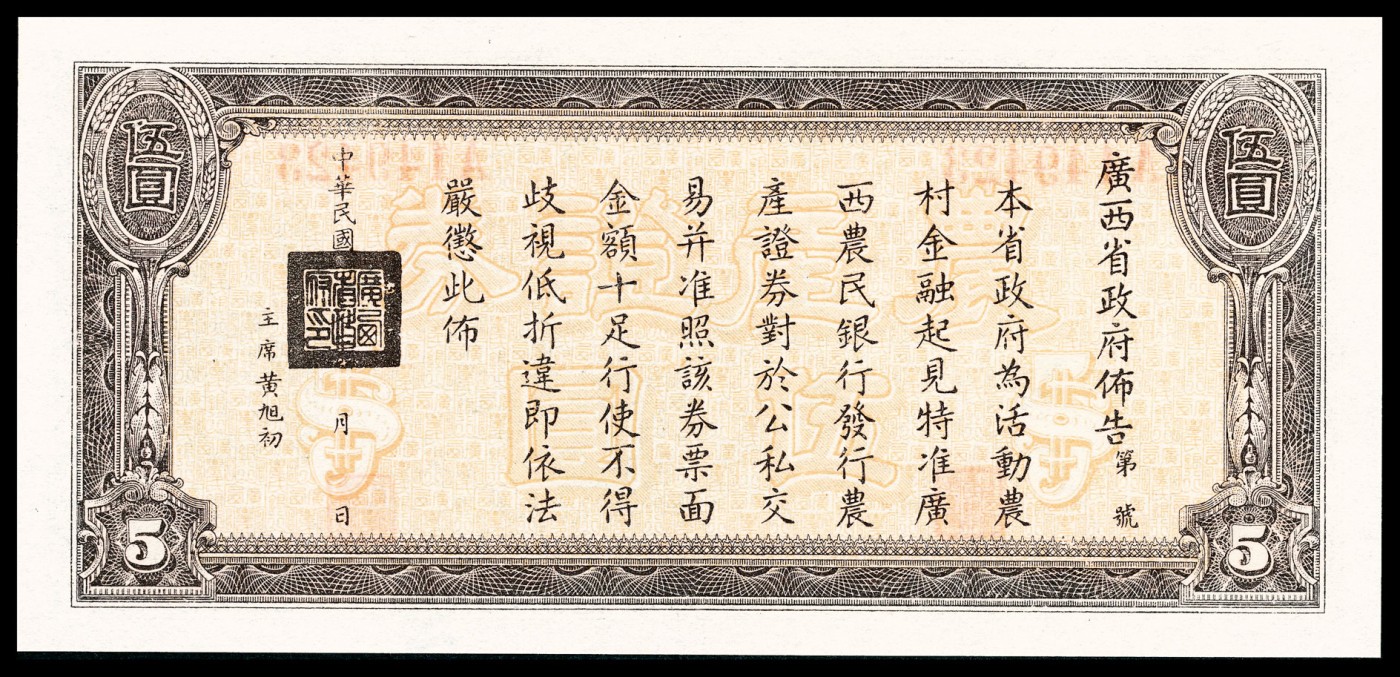 伍圓
廣西省政府佈告第 號
本省政府為活動農
村金融起見特准廣
西農民銀行發行農
產證券對於公私交
易并准照該券票面
金額十足行使不得
歧視低折違即依法
嚴懲此佈
中華民國 月 日
廣西省政府印
主席黃旭初
伍圓
5
5
農產證券
伍圓